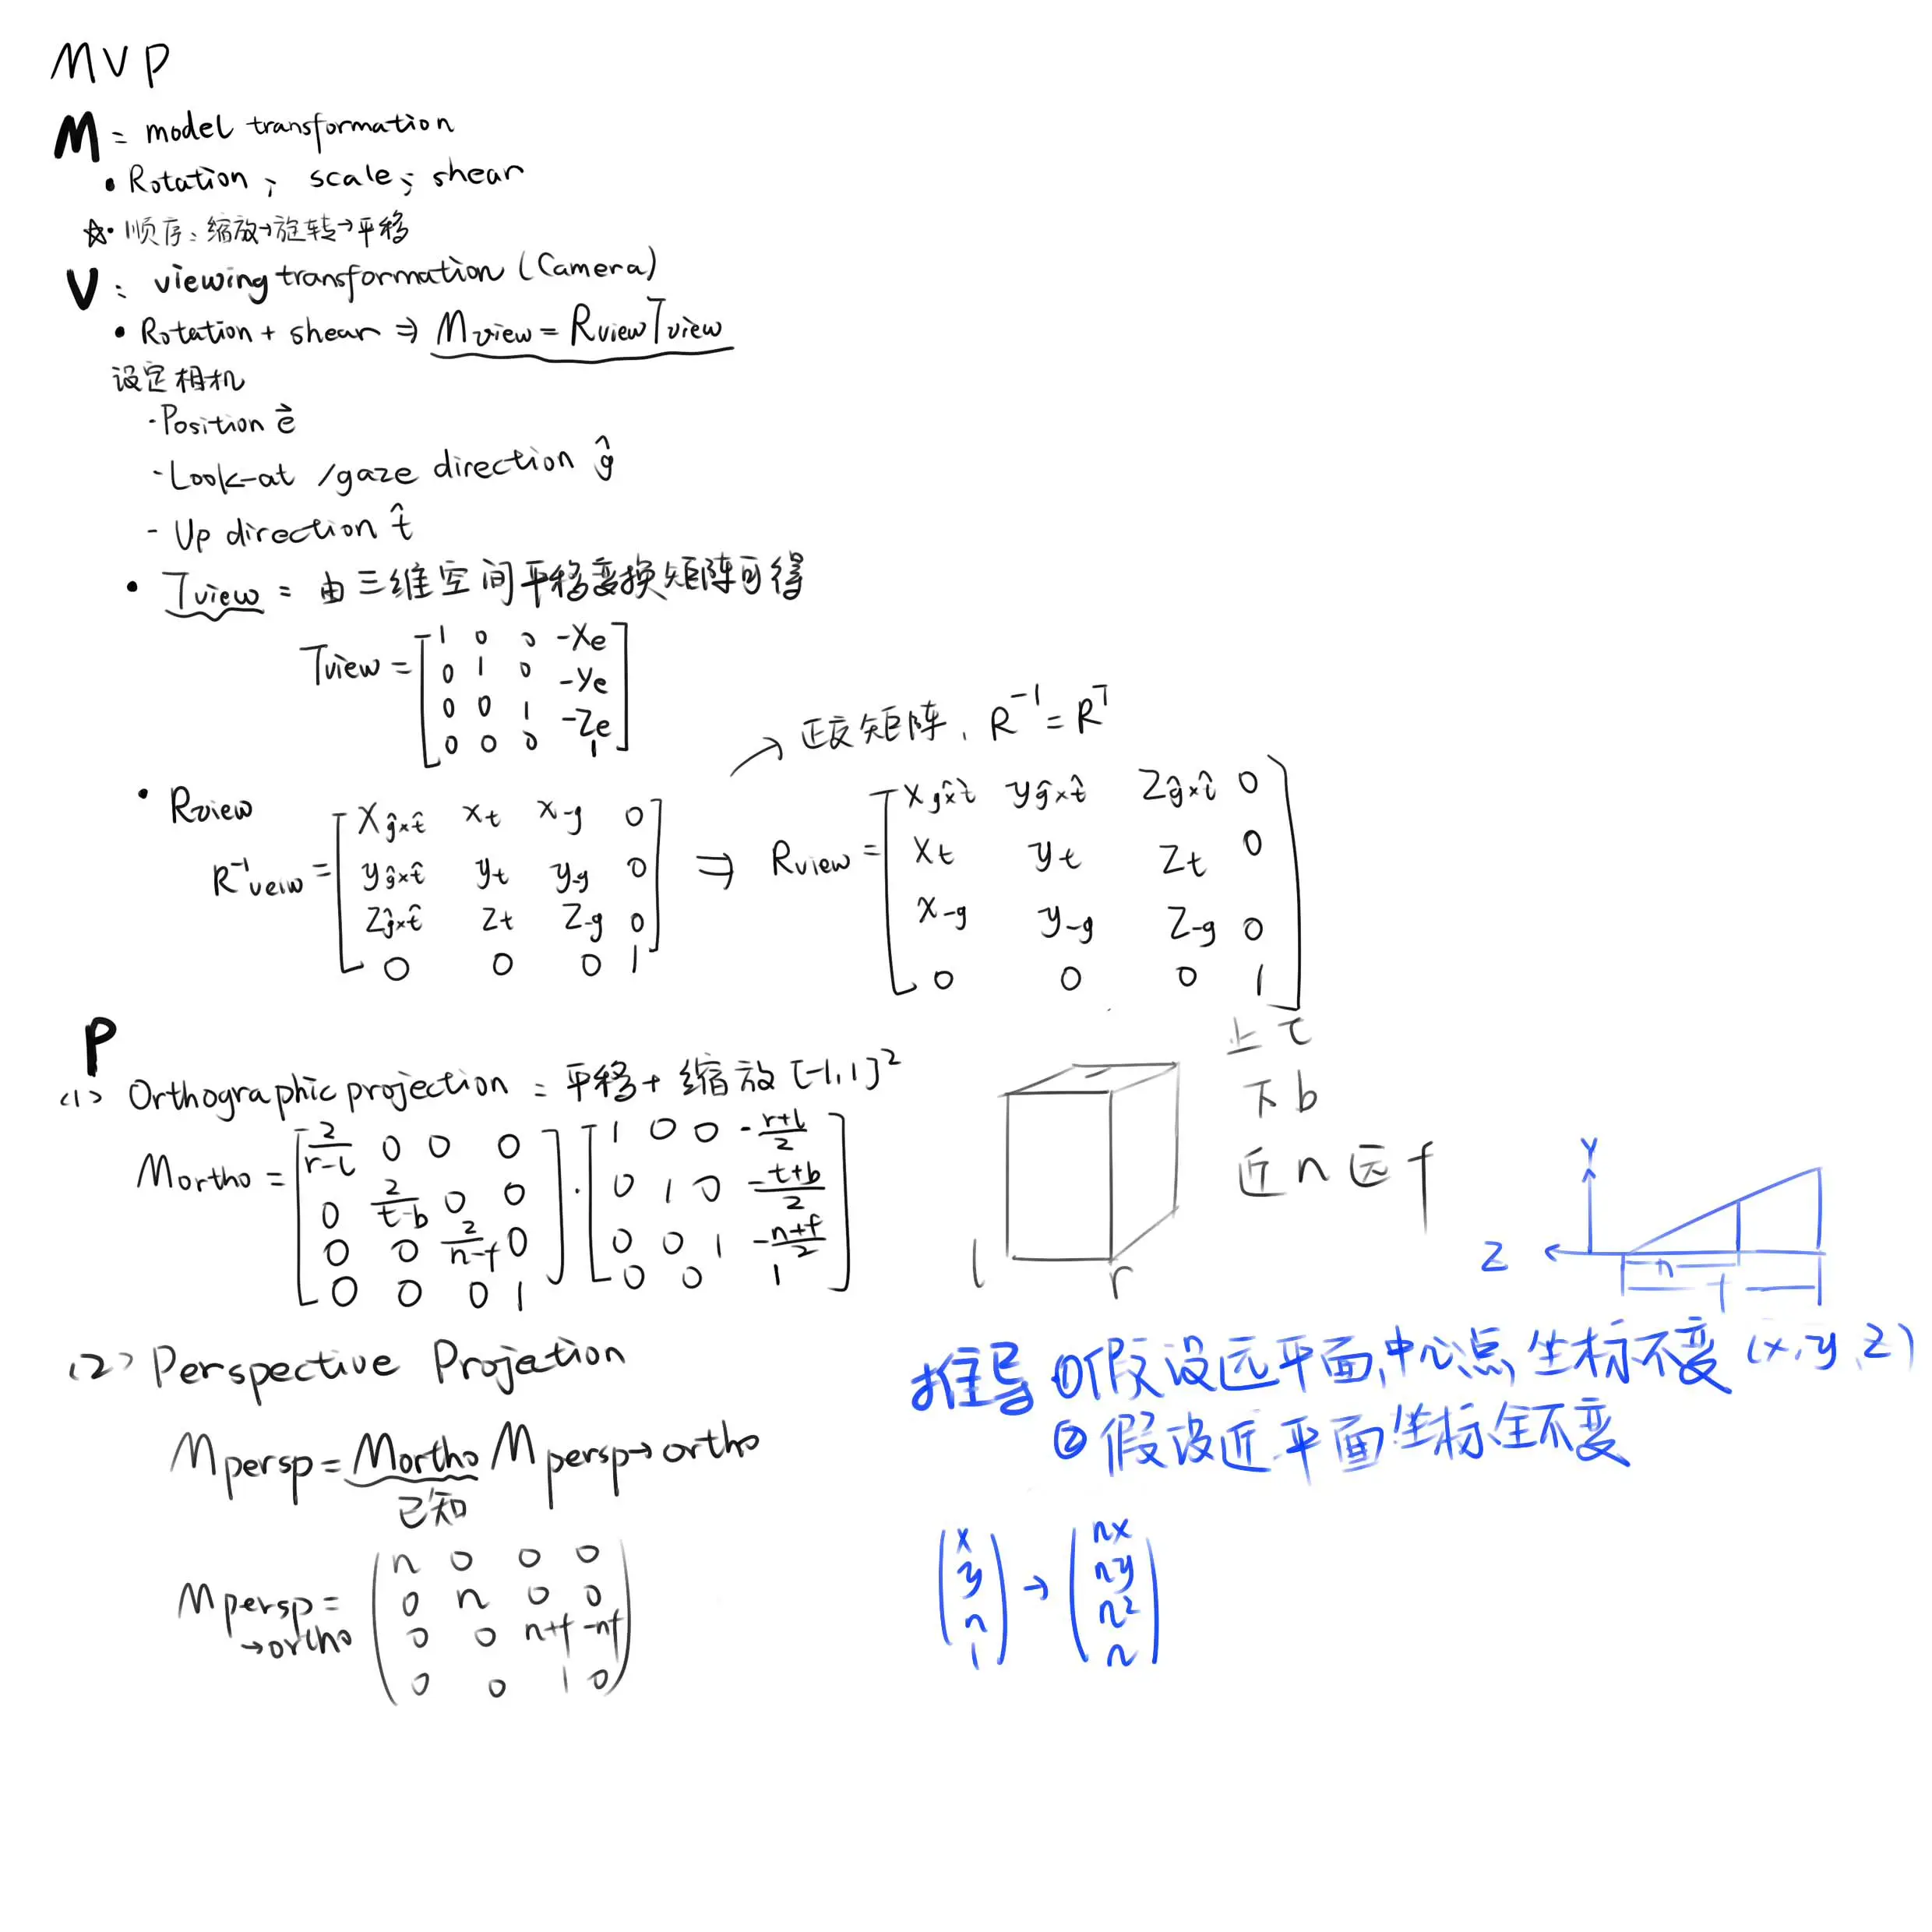 MVP
M = model transformation
• Rotation ; scale ; shear
☆• 顺序: 缩放→旋转→平移
V : viewing transformation (Camera)
• Rotation + shear ⇒ Mview = RviewTview
设定相机
- Position e⃗
- Look-at /gaze direction ĝ
- Up direction t̂
• Tview = 由三维空间平移变换矩阵可得
Tview = [1 0 0 -Xe
0 1 0 -Ye
0 0 1 -Ze
0 0 0 1]
→ 正交矩阵, R⁻¹ = Rᵀ
• Rview
R⁻¹veiw = [X ĝ×t̂ Xt X-g 0
y ĝ×t̂ yt y-g 0
Z ĝ×t̂ Zt Z-g 0
0 0 0 1]
⇒ Rview = [X ĝ×t̂ y ĝ×t̂ Z ĝ×t̂ 0
Xt yt Zt 0
X-g y-g Z-g 0
0 0 0 1]
P
(1) Orthographic projection = 平移+缩放 [-1,1]²
Mortho = [2/(r-l) 0 0 0
0 2/(t-b) 0 0
0 0 2/(n-f) 0
0 0 0 1]
· [1 0 0 -(r+l)/2
0 1 0 -(t+b)/2
0 0 1 -(n+f)/2
0 0 1]
上 t
下 b
近 n 远 f
l
r
Y
Z
n
f
(2) Perspective Projection
Mpersp = Mortho Mpersp→ortho
已知
Mpersp→ortho = (n 0 0 0
0 n 0 0
0 0 n+f -nf
0 0 1 0)
推导 ①假设远平面,中心点,坐标不变 (x,y,z)
② 假设近平面坐标全不变
(x
y
n
1)
→ (nx
ny
n²
n)